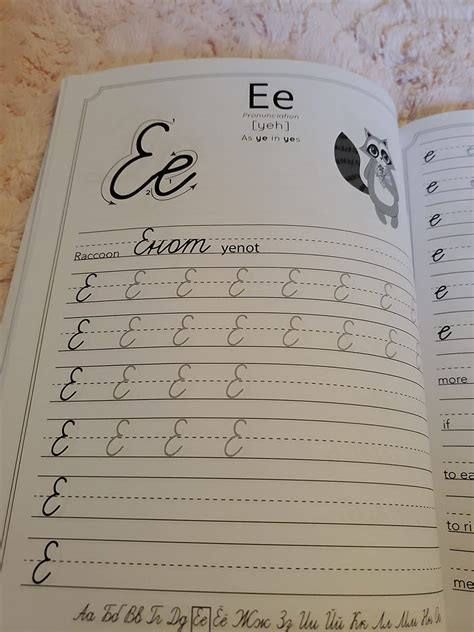 Ее
Pronunciation
[yeh]
As ye in yes
Ее
1
1
2
Raccoon Енот yenot
Е Е Е Е Е Е Е
Е Е Е Е Е Е Е
Е Е Е Е
Е Е Е Е
Е
Е
Аа Бб Вв Гг Дд Ее Ёё Жж Зз Ии Йй Кк Лл Мм Нн
е
е
е
е
е
е
е
more
if